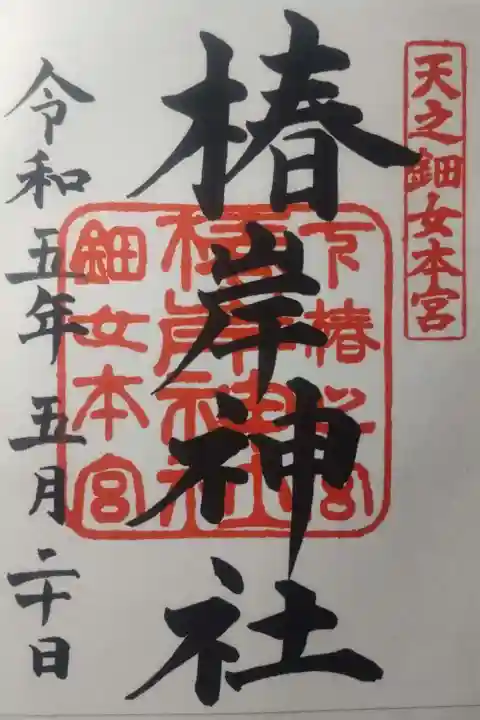 天之鈿女本宮
椿岸神社
鈿女本宮
令和五年 五月 二十日